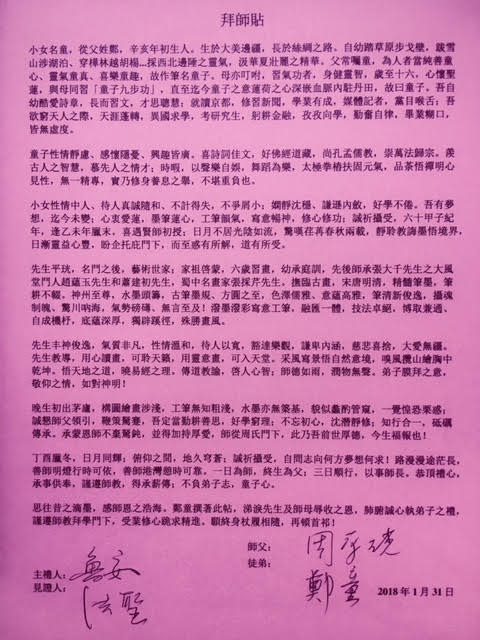 拜師貼
小女名童，從父姓鄭，辛亥年初生人。生於大美邊疆，長於絲綢之路。自幼踏草原步戈壁，跋雪
山涉湖泊、穿樺林越胡楊...採西北邊陲之靈氣，汲華夏壯麗之精華。父常囑童，為人者當純善童
心、靈氣童真、喜樂童趣，故作筆名童子。母亦叮咐，習氣功者，身健靈智，歲至十六，心懷聖
蓮，與母同習「童子九步功」，直至迄今童子之意蓮荷之心深嵌血脈內駐丹田，故曰童子。吾自
幼酷愛詩章，長而習文，才思聰慧；就讀京都，修習新聞，學業有成，媒體記者，黨目喉舌；吾
欲窮天人之際，天涯蓬轉，異國求學，考研究生，躬耕金融，孜孜向學，勤奮自律，畢業糊口，
皆無虛度。
童子性情靜慮、感懷隱憂、興趣皆廣。喜詩詞佳文，好佛經道藏，尚孔孟儒教，崇萬法歸宗。羨
古人之智慧，慕先人之情才；時暇，以聲樂自娛，舞蹈為樂，太極拳樁扶固元氣，品茶悟禪明心
見性，無一精專，實乃修身養息之舉，不堪重負也。
小女性情中人、待人真誠隨和、不計得失，不爭屑小；嫻靜沈穩、謙遜內斂，好學不倦。吾有夢
想，迄今未變；心衷愛蓮，墨筆蓮心，工筆韻氣，寫意暢神，修心修功；誠祈攝受，六十甲子紀
年，逢乙未年臘末，喜遇賢師初授；日月不居光陰如流，驚嘆荏苒春秋兩載，靜聆教誨墨悟境界，
日漸靈益心豐，盼企托庇門下，而至感有所解，道有所受。
先生平珖，名門之後，藝術世家；家祖啓蒙，六歲習畫，幼承庭訓，先後師承張大千先生之大風
堂門人趙蘊玉先生和蕭建初先生，蜀中名畫家張採芹先生，撫臨古畫，宋唐明清，精髓筆墨，筆
耕不輟。神州至尊，水墨頭籌，古筆墨規、方圓之至，色澤儒雅、意蘊高雅，筆清新俊逸，攝魂
制魄、驚川吶海，氣勢磅礡、無言至及！潑墨潑彩寫意工筆，融匯一體，技法卓絕，博取兼通、
自成機杼，底蘊深厚，獨辟蹊徑，殊勝畫風。
先生丰神俊逸，氣質非凡，性情溫和，待人以寬，豁達樂觀，謙卑內涵，慈悲喜捨，大愛無疆。
先生教導，用心讀畫，可聆天籟，用靈意畫，可入天堂。采風寫景悟自然意境，嗅風攬山繪胸中
乾坤。悟天地之道，曉易經之理。傳道教諭，啓人心智；師德如雨，潤物無聲。弟子膜拜之意，
敬仰之情，如對神明！
晚生初出茅廬，構圖繪畫涉淺，工筆無知粗淺，水墨亦無築基，貌似蠡酌管窺，一覺惶恐栗感；
誠懇師父領引，鞭策駕蹇，吾定當勤耕善思，好學窮理；不忘初心，沈潛靜修；知行合一，砥礪
傳承。承蒙恩師不棄駑鈍，並得加持厚愛，師從周氏門下，此乃吾前世厚德，今生福報也！
丁酉臘冬，日月同輝；俯仰之間，地久穹蒼；誠祈攝受，自問志向何方夢想何求！路漫漫途茫長，
善師明燈行時可依，善師港灣憩時可靠，一日為師，終生為父；三日順行，以事師長。恭頂禮心。
承事供奉，謹遵師教，得承薪傳；不負弟子志，童子心。
思往昔之滴墨，感師恩之浩海。鄭童撰著此帖，涕淚先生及師母辱收之恩，肺腑誠心執弟子之禮，
謹遵師教拜學門下，受業修心跪求精進。願終身杖履相隨，再頓首祁！
師父：周平珖
徒弟：鄭童
主禮人：
見證人：
2018 年 1 月 31 日